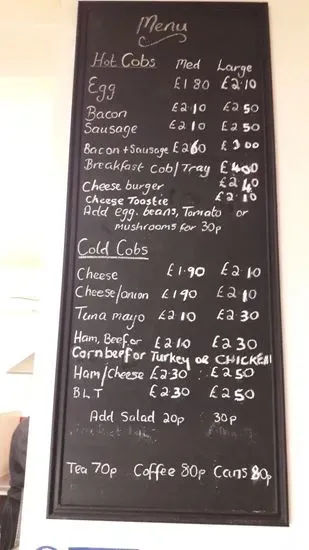 Menu
Hot Cobs Med Large
Egg £1.80 £2.10
Bacon £2.10 £2.50
Sausage £2.10 £2.50
Bacon + Sausage £2.60 £3.00
Breakfast Cob/Tray £4.00
Cheese burger £2.40
Cheese Toastie £2.10
Add egg. beans, Tomato or
mushrooms for 30p
Cold Cobs
Cheese £1.90 £2.10
Cheese/onion £1.90 £2.10
Tuna mayo £2.10 £2.30
Ham, Beef or £2.10 £2.30
Corn beef or Turkey or CHICKEN
Ham/cheese £2.30 £2.50
BLT £2.30 £2.50
Add Salad 20p 30p
Tea 70p Coffee 80p Cans 80p